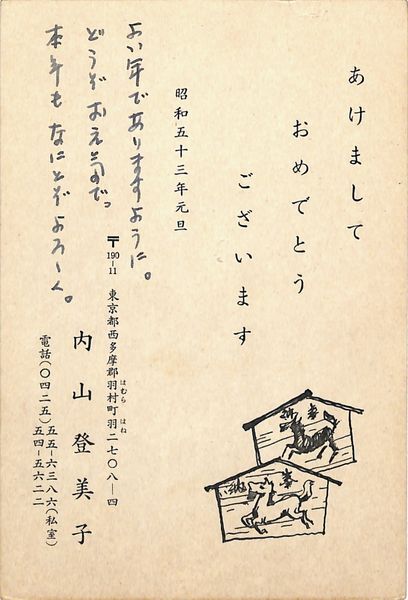 あけまして
おめでとう
ございます
昭和五十三年元旦
よい年でありますように。
どうぞお元気で。
本年もなにとぞよろしく。
〒190-11 東京都西多摩郡羽村町羽二七〇八―四
はむら はね
内山登美子
電話(〇四二五)五五―六三八六(私室)
五四―五六二二
奉納
奉納